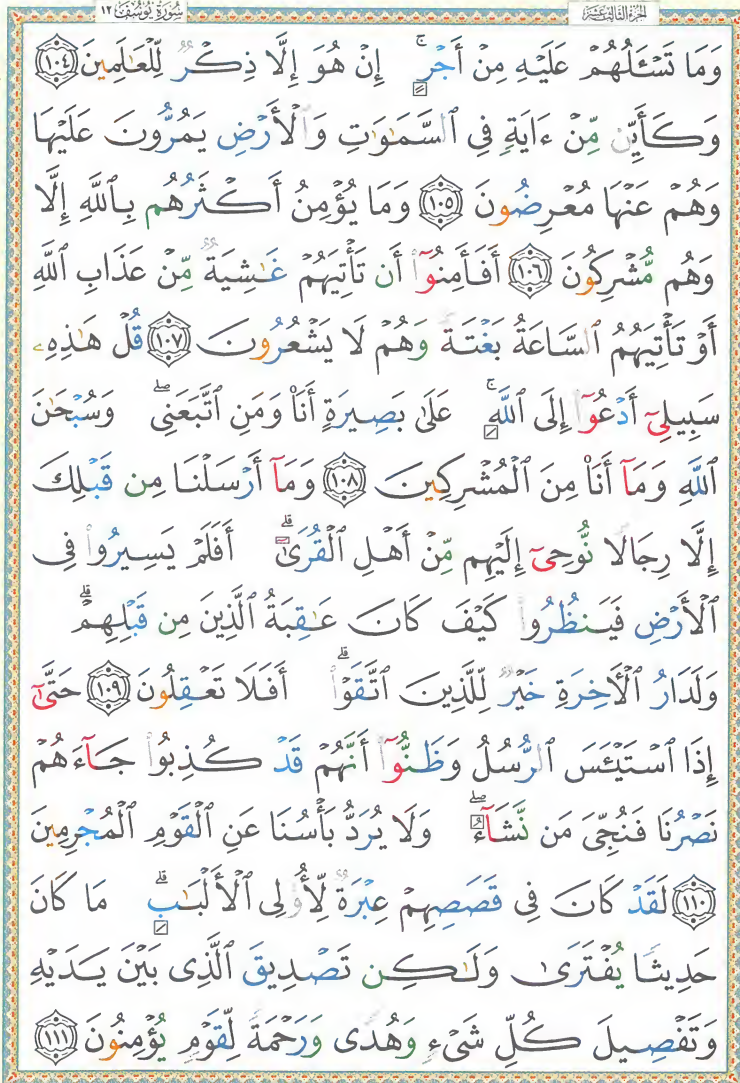 الجزء الثالث عشر
سورة يوسف ١٢
وَمَا تَسْـَٔلُهُمْ عَلَيْهِ مِنْ أَجْرٍ ۚ إِنْ هُوَ إِلَّا ذِكْرٌ لِّلْعَـٰلَمِينَ ١٠٤
وَكَأَيِّن مِّنْ ءَايَةٍ فِى ٱلسَّمَـٰوَٰتِ وَٱلْأَرْضِ يَمُرُّونَ عَلَيْهَا
وَهُمْ عَنْهَا مُعْرِضُونَ ١٠٥ وَمَا يُؤْمِنُ أَكْثَرُهُم بِٱللَّهِ إِلَّا
وَهُم مُّشْرِكُونَ ١٠٦ أَفَأَمِنُوٓا۟ أَن تَأْتِيَهُمْ غَـٰشِيَةٌ مِّنْ عَذَابِ ٱللَّهِ
أَوْ تَأْتِيَهُمُ ٱلسَّاعَةُ بَغْتَةً وَهُمْ لَا يَشْعُرُونَ ١٠٧ قُلْ هَـٰذِهِۦ
سَبِيلِىٓ أَدْعُوٓا۟ إِلَى ٱللَّهِ ۚ عَلَىٰ بَصِيرَةٍ أَنَا۠ وَمَنِ ٱتَّبَعَنِى ۖ وَسُبْحَـٰنَ
ٱللَّهِ وَمَآ أَنَا۠ مِنَ ٱلْمُشْرِكِينَ ١٠٨ وَمَآ أَرْسَلْنَا مِن قَبْلِكَ
إِلَّا رِجَالًا نُّوحِىٓ إِلَيْهِم مِّنْ أَهْلِ ٱلْقُرَىٰٓ ۗ أَفَلَمْ يَسِيرُوا۟ فِى
ٱلْأَرْضِ فَيَنظُرُوا۟ كَيْفَ كَانَ عَـٰقِبَةُ ٱلَّذِينَ مِن قَبْلِهِمْ ۗ
وَلَدَارُ ٱلْـَٔاخِرَةِ خَيْرٌ لِّلَّذِينَ ٱتَّقَوْا۟ ۗ أَفَلَا تَعْقِلُونَ ١٠٩ حَتَّىٰٓ
إِذَا ٱسْتَيْـَٔسَ ٱلرُّسُلُ وَظَنُّوٓا۟ أَنَّهُمْ قَدْ كُذِبُوا۟ جَآءَهُمْ
نَصْرُنَا فَنُجِّىَ مَن نَّشَآءُ ۖ وَلَا يُرَدُّ بَأْسُنَا عَنِ ٱلْقَوْمِ ٱلْمُجْرِمِينَ
١١٠ لَقَدْ كَانَ فِى قَصَصِهِمْ عِبْرَةٌ لِّأُو۟لِى ٱلْأَلْبَـٰبِ ۗ مَا كَانَ
حَدِيثًا يُفْتَرَىٰ وَلَـٰكِن تَصْدِيقَ ٱلَّذِى بَيْنَ يَدَيْهِ
وَتَفْصِيلَ كُلِّ شَىْءٍ وَهُدًى وَرَحْمَةً لِّقَوْمٍ يُؤْمِنُونَ ١١١